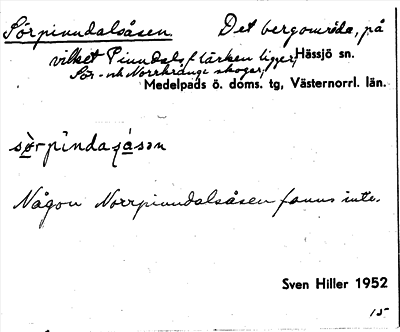 Sörpinndalsåsen Det bergområde, på
vilket Pinndalsflärken ligger, Hässjö sn.
Sör- och Norrkrånge skogar,
Medelpads ö. doms. tg, Västernorrl. län.
sö̀rpìndasåsən
Någon Norrpinndalsåsen fanns inte.
Sven Hiller 1952
15